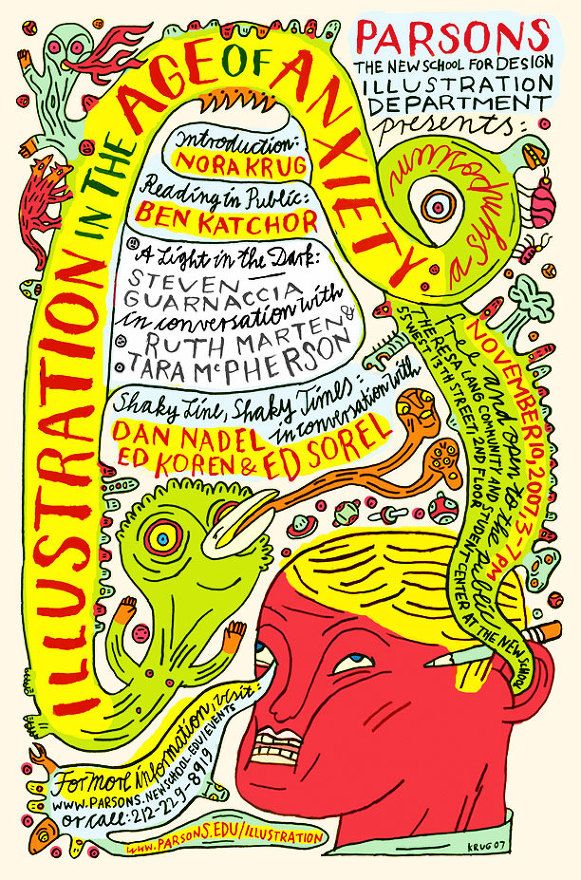 PARSONS
THE NEW SCHOOL FOR DESIGN
ILLUSTRATION
DEPARTMENT
presents:
a symposium
ILLUSTRATION IN THE AGE OF ANXIETY
Introduction:
NORA KRUG
Reading in Public:
BEN KATCHOR
A Light in the Dark:
STEVEN
GUARNACCIA
in conversation with
RUTH MARTEN &
TARA McPHERSON
Shaky Line, Shaky Times:
DAN NADEL in conversation with
ED KOREN & ED SOREL
NOVEMBER 10, 2007, 3-7 PM
free and open to the public
THERESA LANG COMMUNITY AND STUDENT CENTER AT THE NEW SCHOOL
55 WEST 13TH STREET, 2ND FLOOR
For more information, visit:
WWW.PARSONS.NEWSCHOOL.EDU/EVENTS
or call: 212-229-8919
www.PARSONS.EDU/ILLUSTRATION
KRUG 07